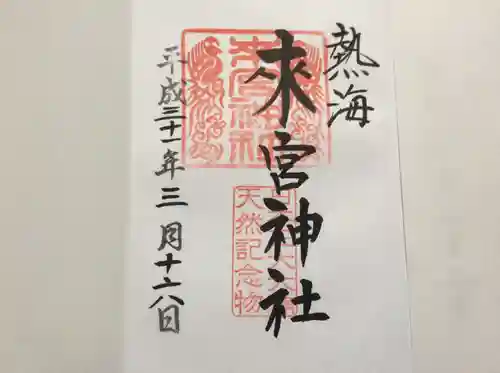 熱海
來宮神社
平成三十一年三月十六日
來宮神社
天然記念物